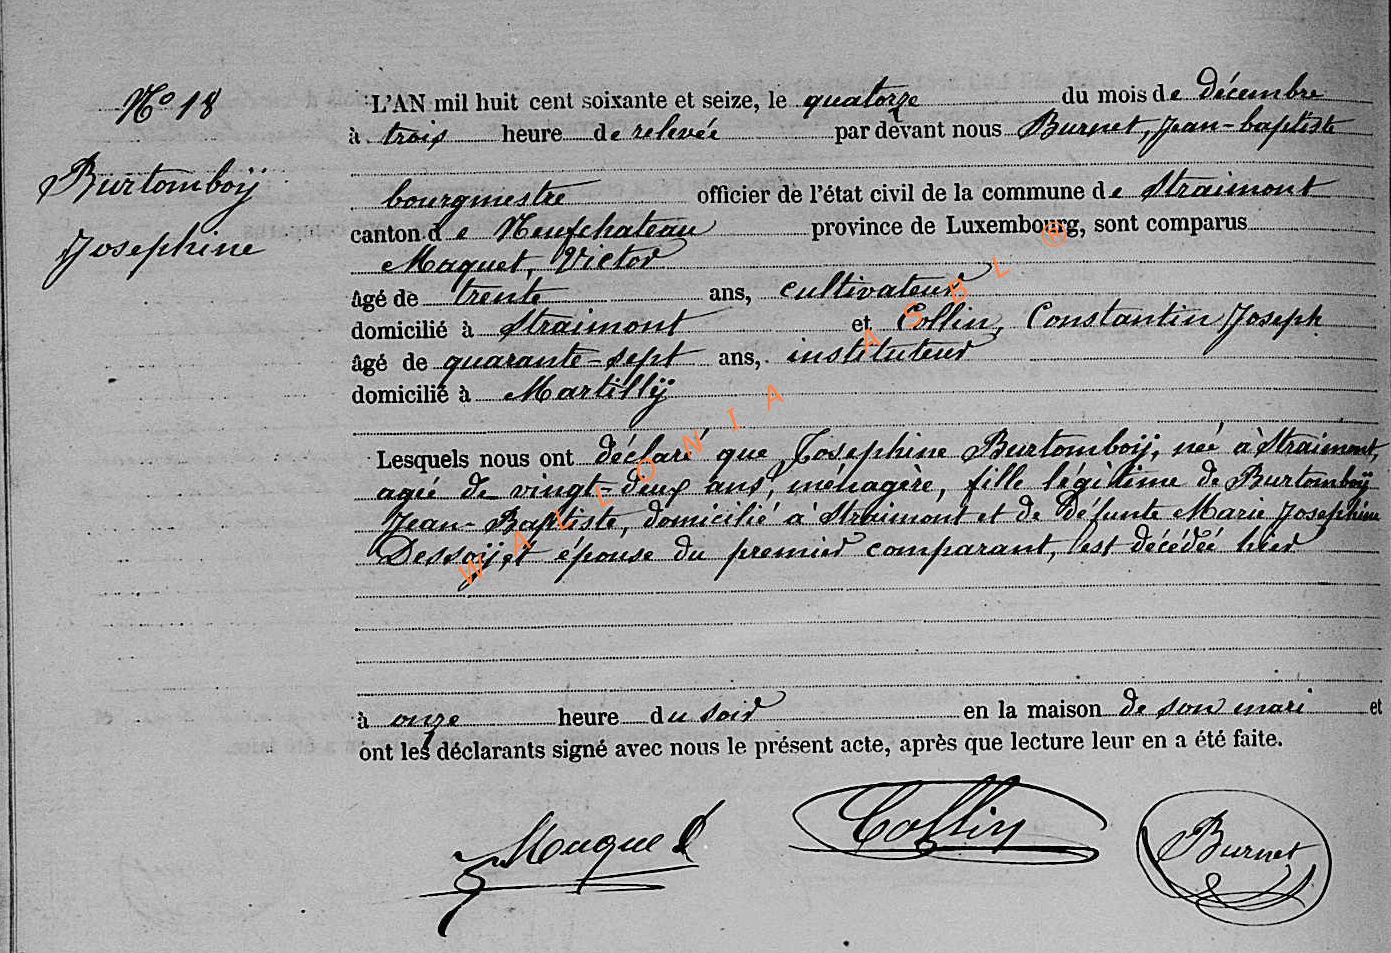 N° 18
Burtomboÿ
Josephine
L'AN mil huit cent soixante et seize, le quatorze du mois de décembre
à trois heure de relevée par devant nous Burnet, Jean-baptiste
bourgmestre officier de l'état civil de la commune de Straimont
canton de Neufchateau province de Luxembourg, sont comparus
Maquet, Victor
âgé de trente ans, cultivateur
domicilié à Straimont et Collin, Constantin Joseph
âgé de quarante-sept ans, instituteur
domicilié à Martillÿ
Lesquels nous ont déclaré que Josephine Burtomboÿ, née à Straimont,
agée de vingt-deux ans, ménagère, fille légitime de Burtomboÿ
Jean-Baptiste, domicilié à Straimont et de défunte Marie Josephine
Dessoÿ, épouse du premier comparant, est décédée hier
à onze heure du soir en la maison de son mari et
ont les déclarants signé avec nous le présent acte, après que lecture leur en a été faite.
Maquet Collin Burnet
WALLONIA ASBL ®